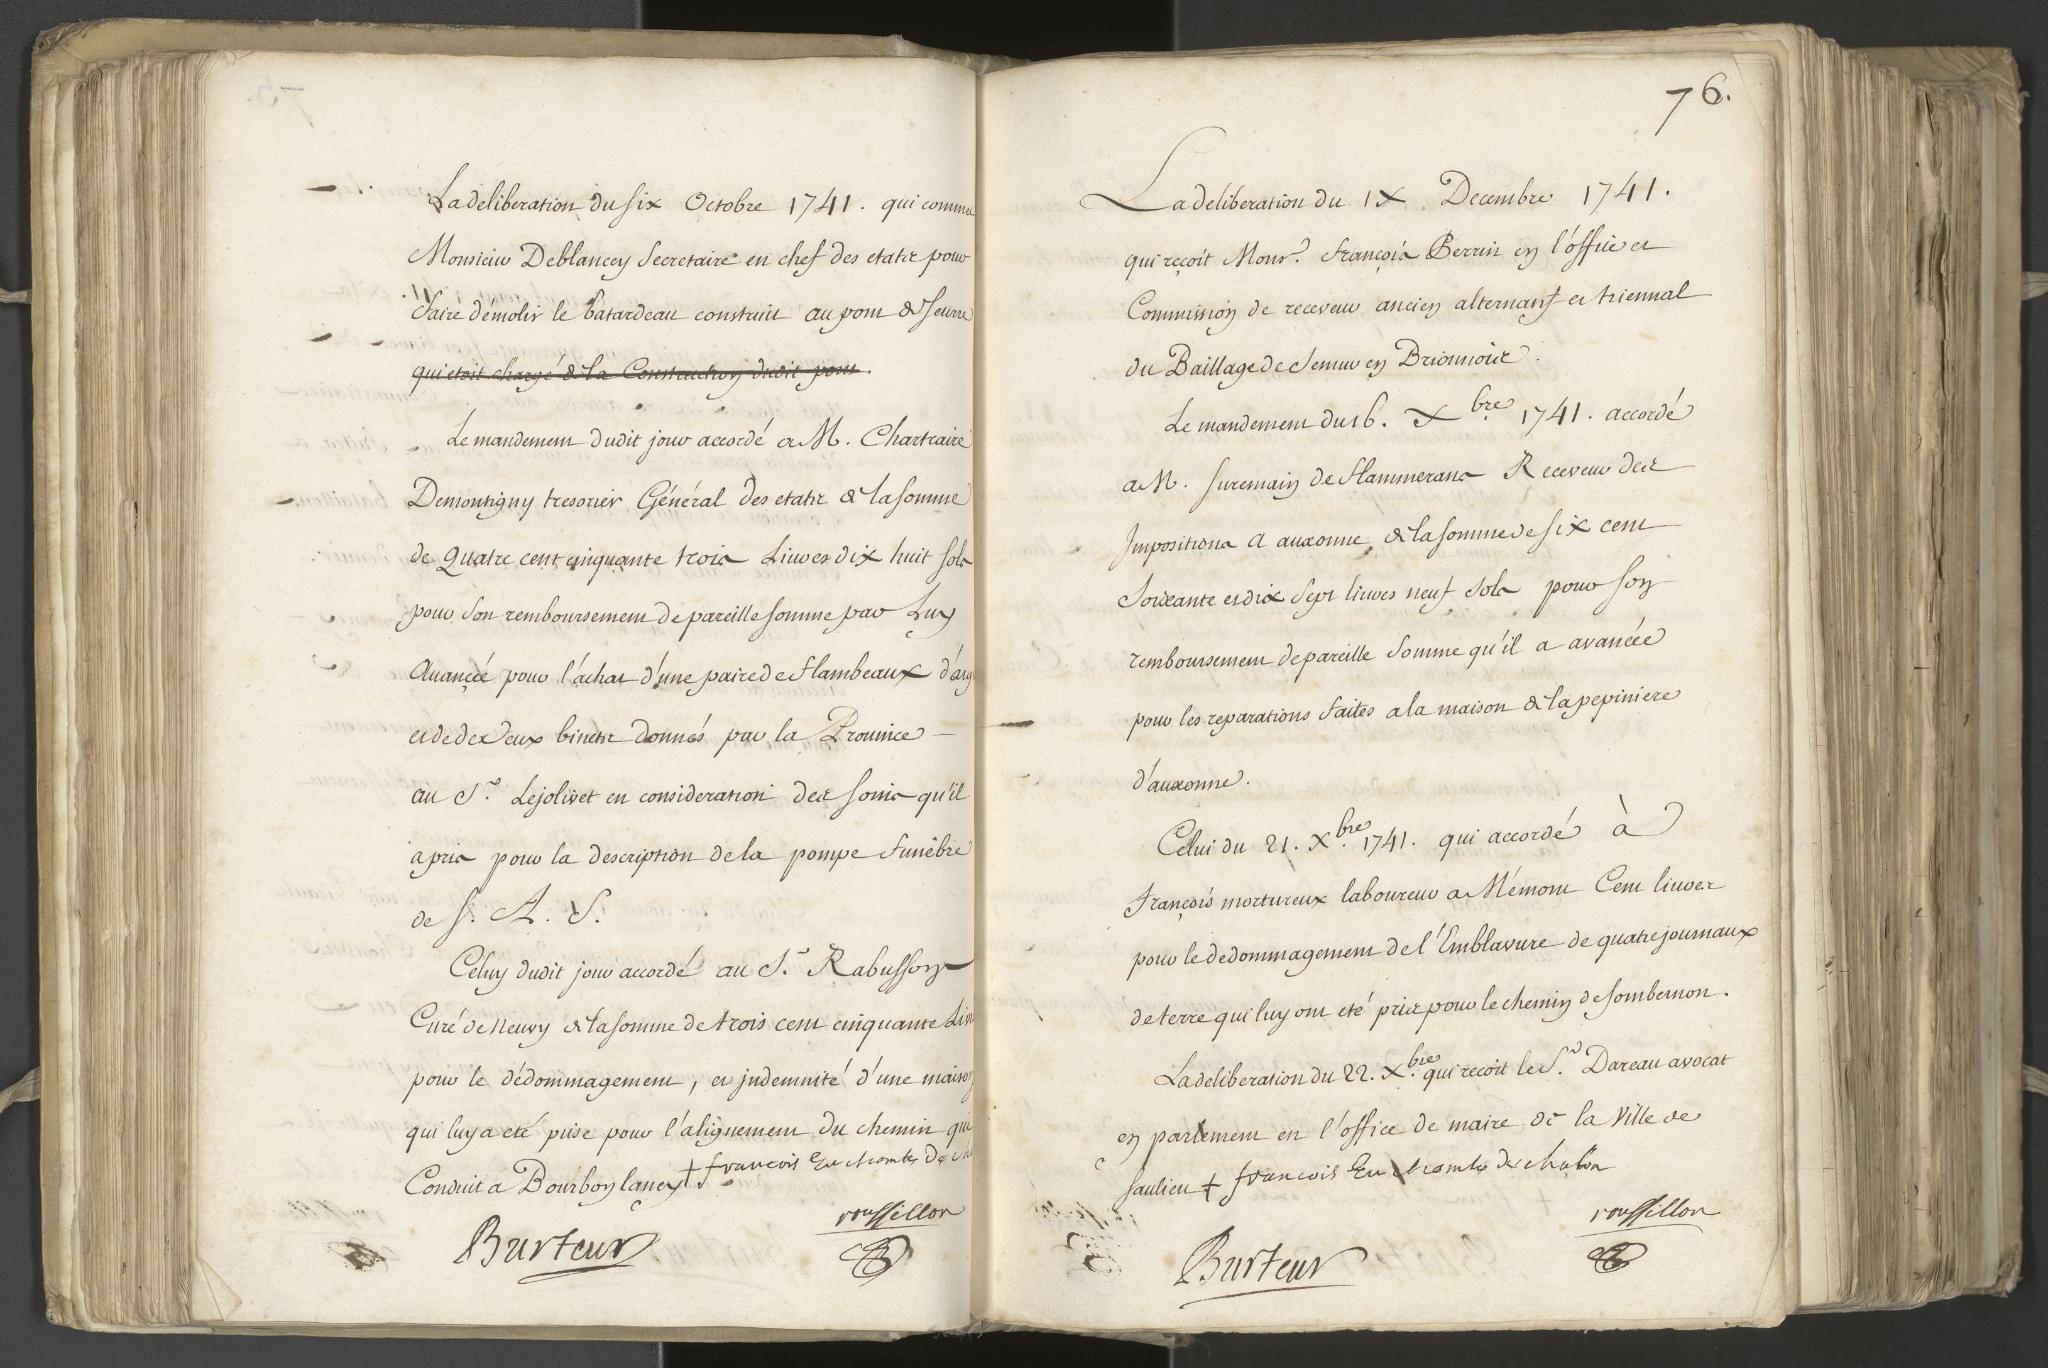 La deliberation du six Octobre 1741. qui comme
Monsieur Deblancey Secretaire en chef des etats pour
faire démolir le batardeau construit au pont de Seurre
qui etoit chargé de la Construction dudit pont.
Le mandement dudit jour accordé a M. Chartraire
Demontigny tresorier Général des etats de la somme
de quatre cent cinquante trois Livres dix huit sols
pour son remboursement de pareille somme par Luy
Avancée pour l'achat d'une paire de flambeaux d'arg
et de deux binets donnés par la Province
au Sr. Lejolivet en consideration des soins qu'il
a pris pour la description de la pompe funèbre
de S. A. S.
Celuy dudit jour accordé au Sr. Rabusson
Curé de Neuvy de la somme de trois cent cinquante Liv
pour le dédommagement, et indemnité d'une maison
qui luy a eté prise pour l'alignement du chemin qui
Conduit a Bourbon lancy + françois Eu
Burteur
roussillon
76.
La deliberation du IX Decembre 1741.
qui reçoit Monsr. françois Perrin en l'office et
Commission de receveur ancien alternant et triennal
du Baillage de Semur en Brionnois.
Le mandement du 16. Xbre 1741. accordé
a M. Suremain de flammerans Receveur des
Impositions a auxonne, de la somme de six cent
soixante et dix sept livres neuf sols pour son
remboursement de pareille somme qu'il a avancée
pour les reparations faites a la maison de la pepiniere
d'auxonne.
Celui du 21. Xbre. 1741. qui accordé à
françois mortureux laboureur a Mémont Cent livres
pour le dedommagement de l'Emblavure de quatre journaux
de terre qui luy ont eté pris pour le chemin de Sombernon.
La deliberation du 22. Xbre. qui recoit le Sr. Dareau avocat
en parlement en l'office de maire de la Ville de
Saulieu + françois Eu de chalon
Burteur
roussillon